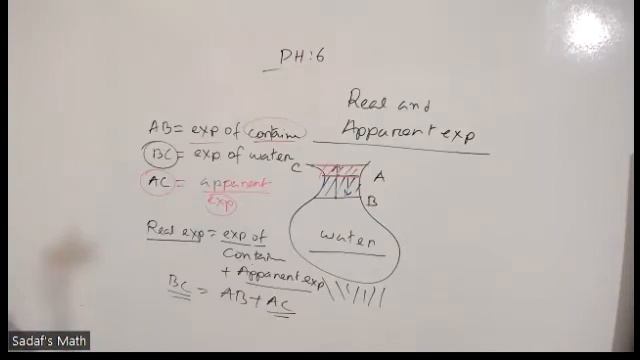 PH:6
Real and
Apparent exp
AB= exp of contain
BC= exp of water
AC= apparent
exp
C
A
B
water
Real exp= exp of
Contain
+ Apparent exp
BC = AB+AC
Sadaf's Math